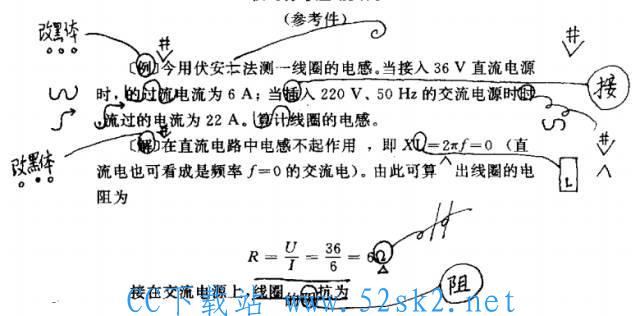 （参考件）
改黑体 # #
〔例〕今用伏安 法测一线圈的电感。当接入 36 V 直流电源
时，的过流电流为 6 A；当插入 220 V、50 Hz 的交流电源时 接
流过的电流为 22 A。算计线圈的电感。
改黑体 # #
〔解〕在直流电路中电感不起作用 ，即 XL=2πf=0 （直
流电也可看成是频率 f=0 的交流电）。由此可算 出线圈的电 L
阻为
R = U/I = 36/6 = 6Ω
接在交流电源上，线圈的 抗为 阻
CC下载站 www.52sk2.net